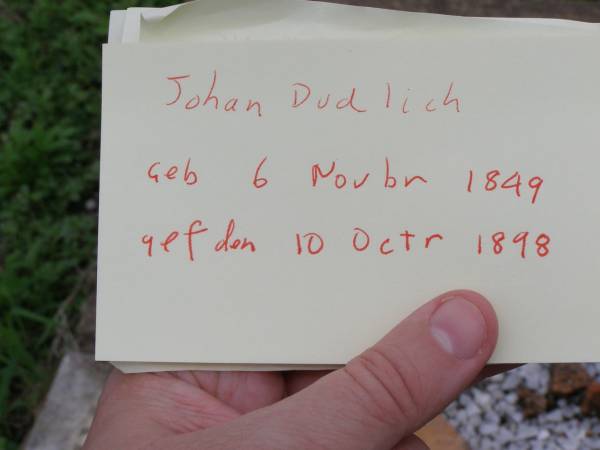 Johan Dudlich
Geb 6 Novbr 1849
gef den 10 Octr 1898